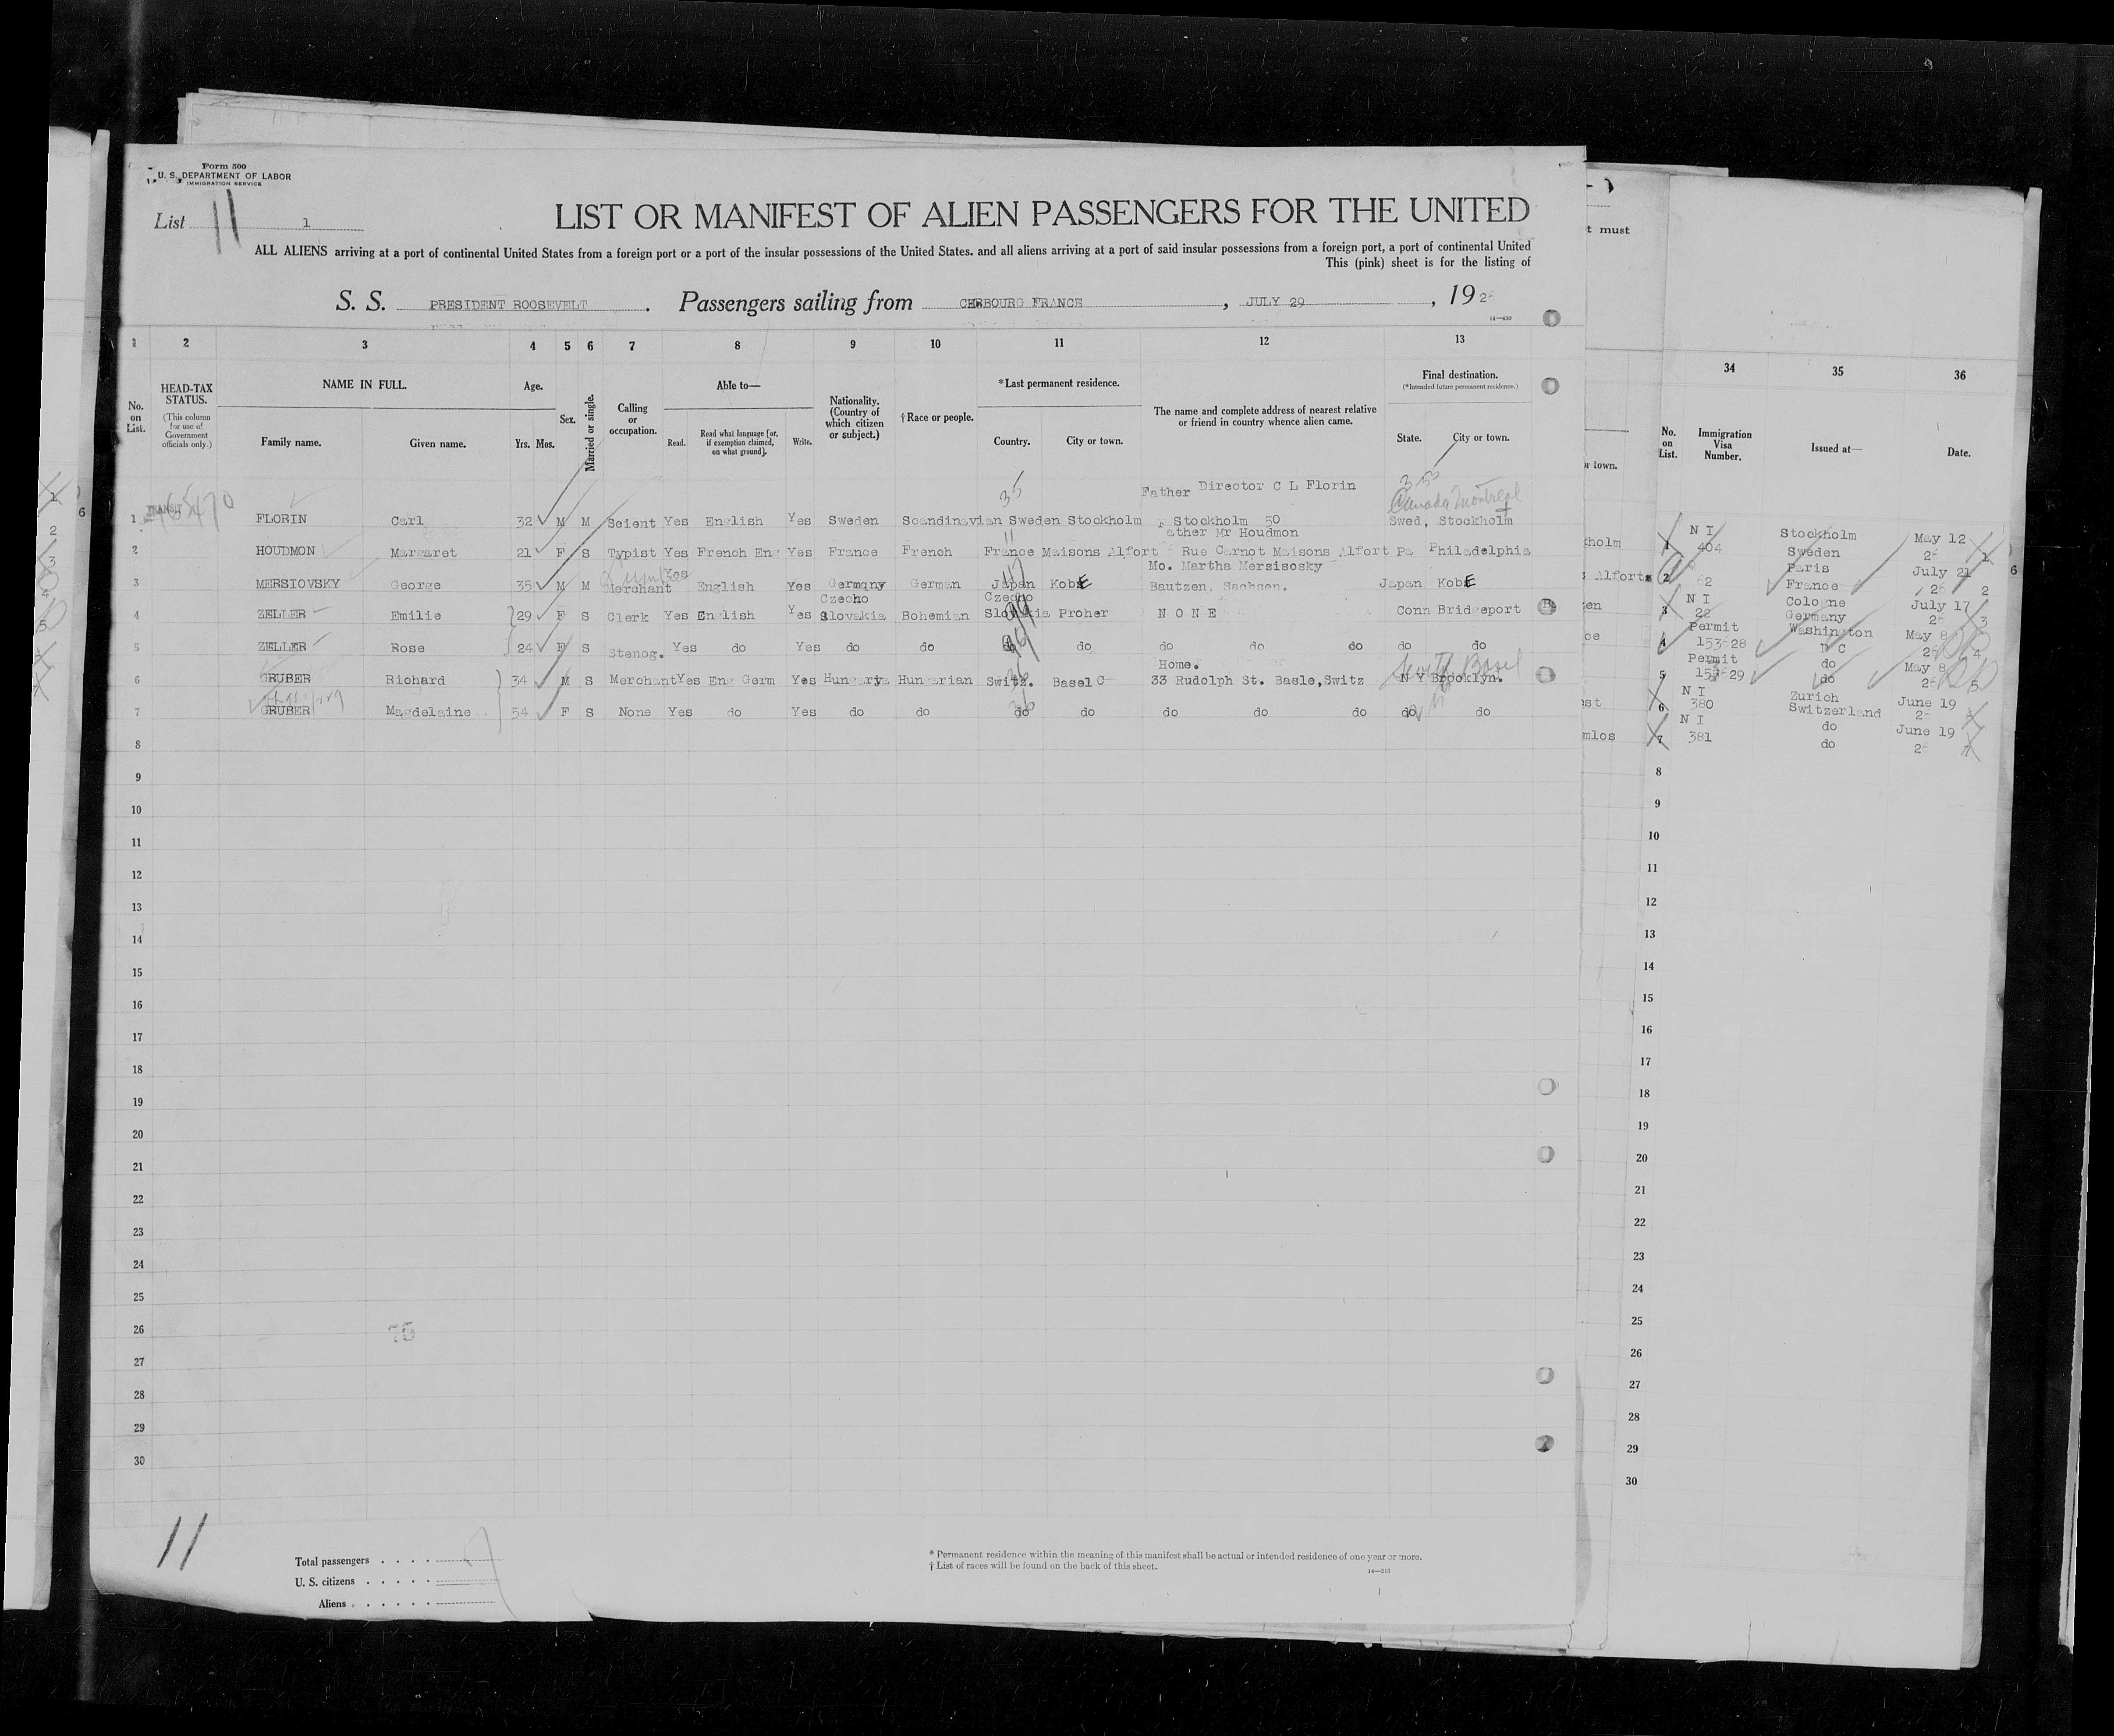 Form 500
U. S. DEPARTMENT OF LABOR
IMMIGRATION SERVICE
List 11 1
LIST OR MANIFEST OF ALIEN PASSENGERS FOR THE UNITED
ALL ALIENS arriving at a port of continental United States from a foreign port or a port of the insular possessions of the United States, and all aliens arriving at a port of said insular possessions from a foreign port, a port of continental United
This (pink) sheet is for the listing of
t must
S. S. PRESIDENT ROOSEVELT . Passengers sailing from CHRBOURG FRANCE , JULY 29 , 1926
14—430
1 2 3 4 5 6 7 8 9 10 11 12 13 34 35 36
No. on List.
HEAD-TAX STATUS.
(This column for use of Government officials only.)
NAME IN FULL.
Family name. Given name.
Age.
Yrs. Mos.
Sex.
Married or single.
Calling or occupation.
Able to—
Read. Read what language [or, if exemption claimed, on what ground]. Write.
Nationality. (Country of which citizen or subject.)
†Race or people.
*Last permanent residence.
Country. City or town.
The name and complete address of nearest relative or friend in country whence alien came.
Final destination.
(*Intended future permanent residence.)
State. City or town.
or town.
No. on List.
Immigration Visa Number.
Issued at—
Date.
35
Father Director C L Florin
Canada Montreal
TRANSIT
1 FLORIN Carl 32 M M Scient Yes English Yes Sweden Scandinavian Sweden Stockholm Stockholm 50 Swed, Stockholm
Father Mr Houdmon
2 HOUDMON Margaret 21 F S Typist Yes French Eng Yes France French France Maisons Alfort Rue Carnot Maisons Alfort Pa Philadelphia
Mo. Martha Merzisosky
3 MERSIOVSKY George 35 M M Merchant Yes English Yes Germqny German Japan KobE Bautzen, Sachsen. Japan KobE
Czecho Czecho
4 ZELLER Emilie 29 F S Clerk Yes English Yes Slovakia Bohemian Slovakia Proher N O N E Conn Bridgeport
5 ZELLER Rose 24 F S Stenog. Yes do Yes do do do do do do do do do
Home.
6 GRUBER Richard 34 M S Merchant Yes Eng Germ Yes Hungary Hungarian Switz. Basel C 33 Rudolph St. Basle, Switz N Y Brooklyn.
7 GRUBER Magdelaine 54 F S None Yes do Yes do do do do do do do do do
8
9
10
11
12
13
14
15
16
17
18
19
20
21
22
23
24
25
26 75
27
28
29
30
kholm 1 N I 404 Stockholm Sweden May 12 26 1
Alfort 2 62 Paris France July 21 26 2
en 3 N I 22 Cologne Germany July 17 26 3
ce 4 Permit 153628 Washington D C May 8 26 4
5 Permit 153629 do do May 8 26 5
st 6 N I 380 Zurich Switzerland June 19 26
mlos 7 N I 381 do do June 19 26
8
9
10
11
12
13
14
15
16
17
18
19
20
21
22
23
24
25
26
27
28
29
30
11
Total passengers . . . .
U. S. citizens . . . . .
Aliens . . . . . .
* Permanent residence within the meaning of this manifest shall be actual or intended residence of one year or more.
† List of races will be found on the back of this sheet.
14—213